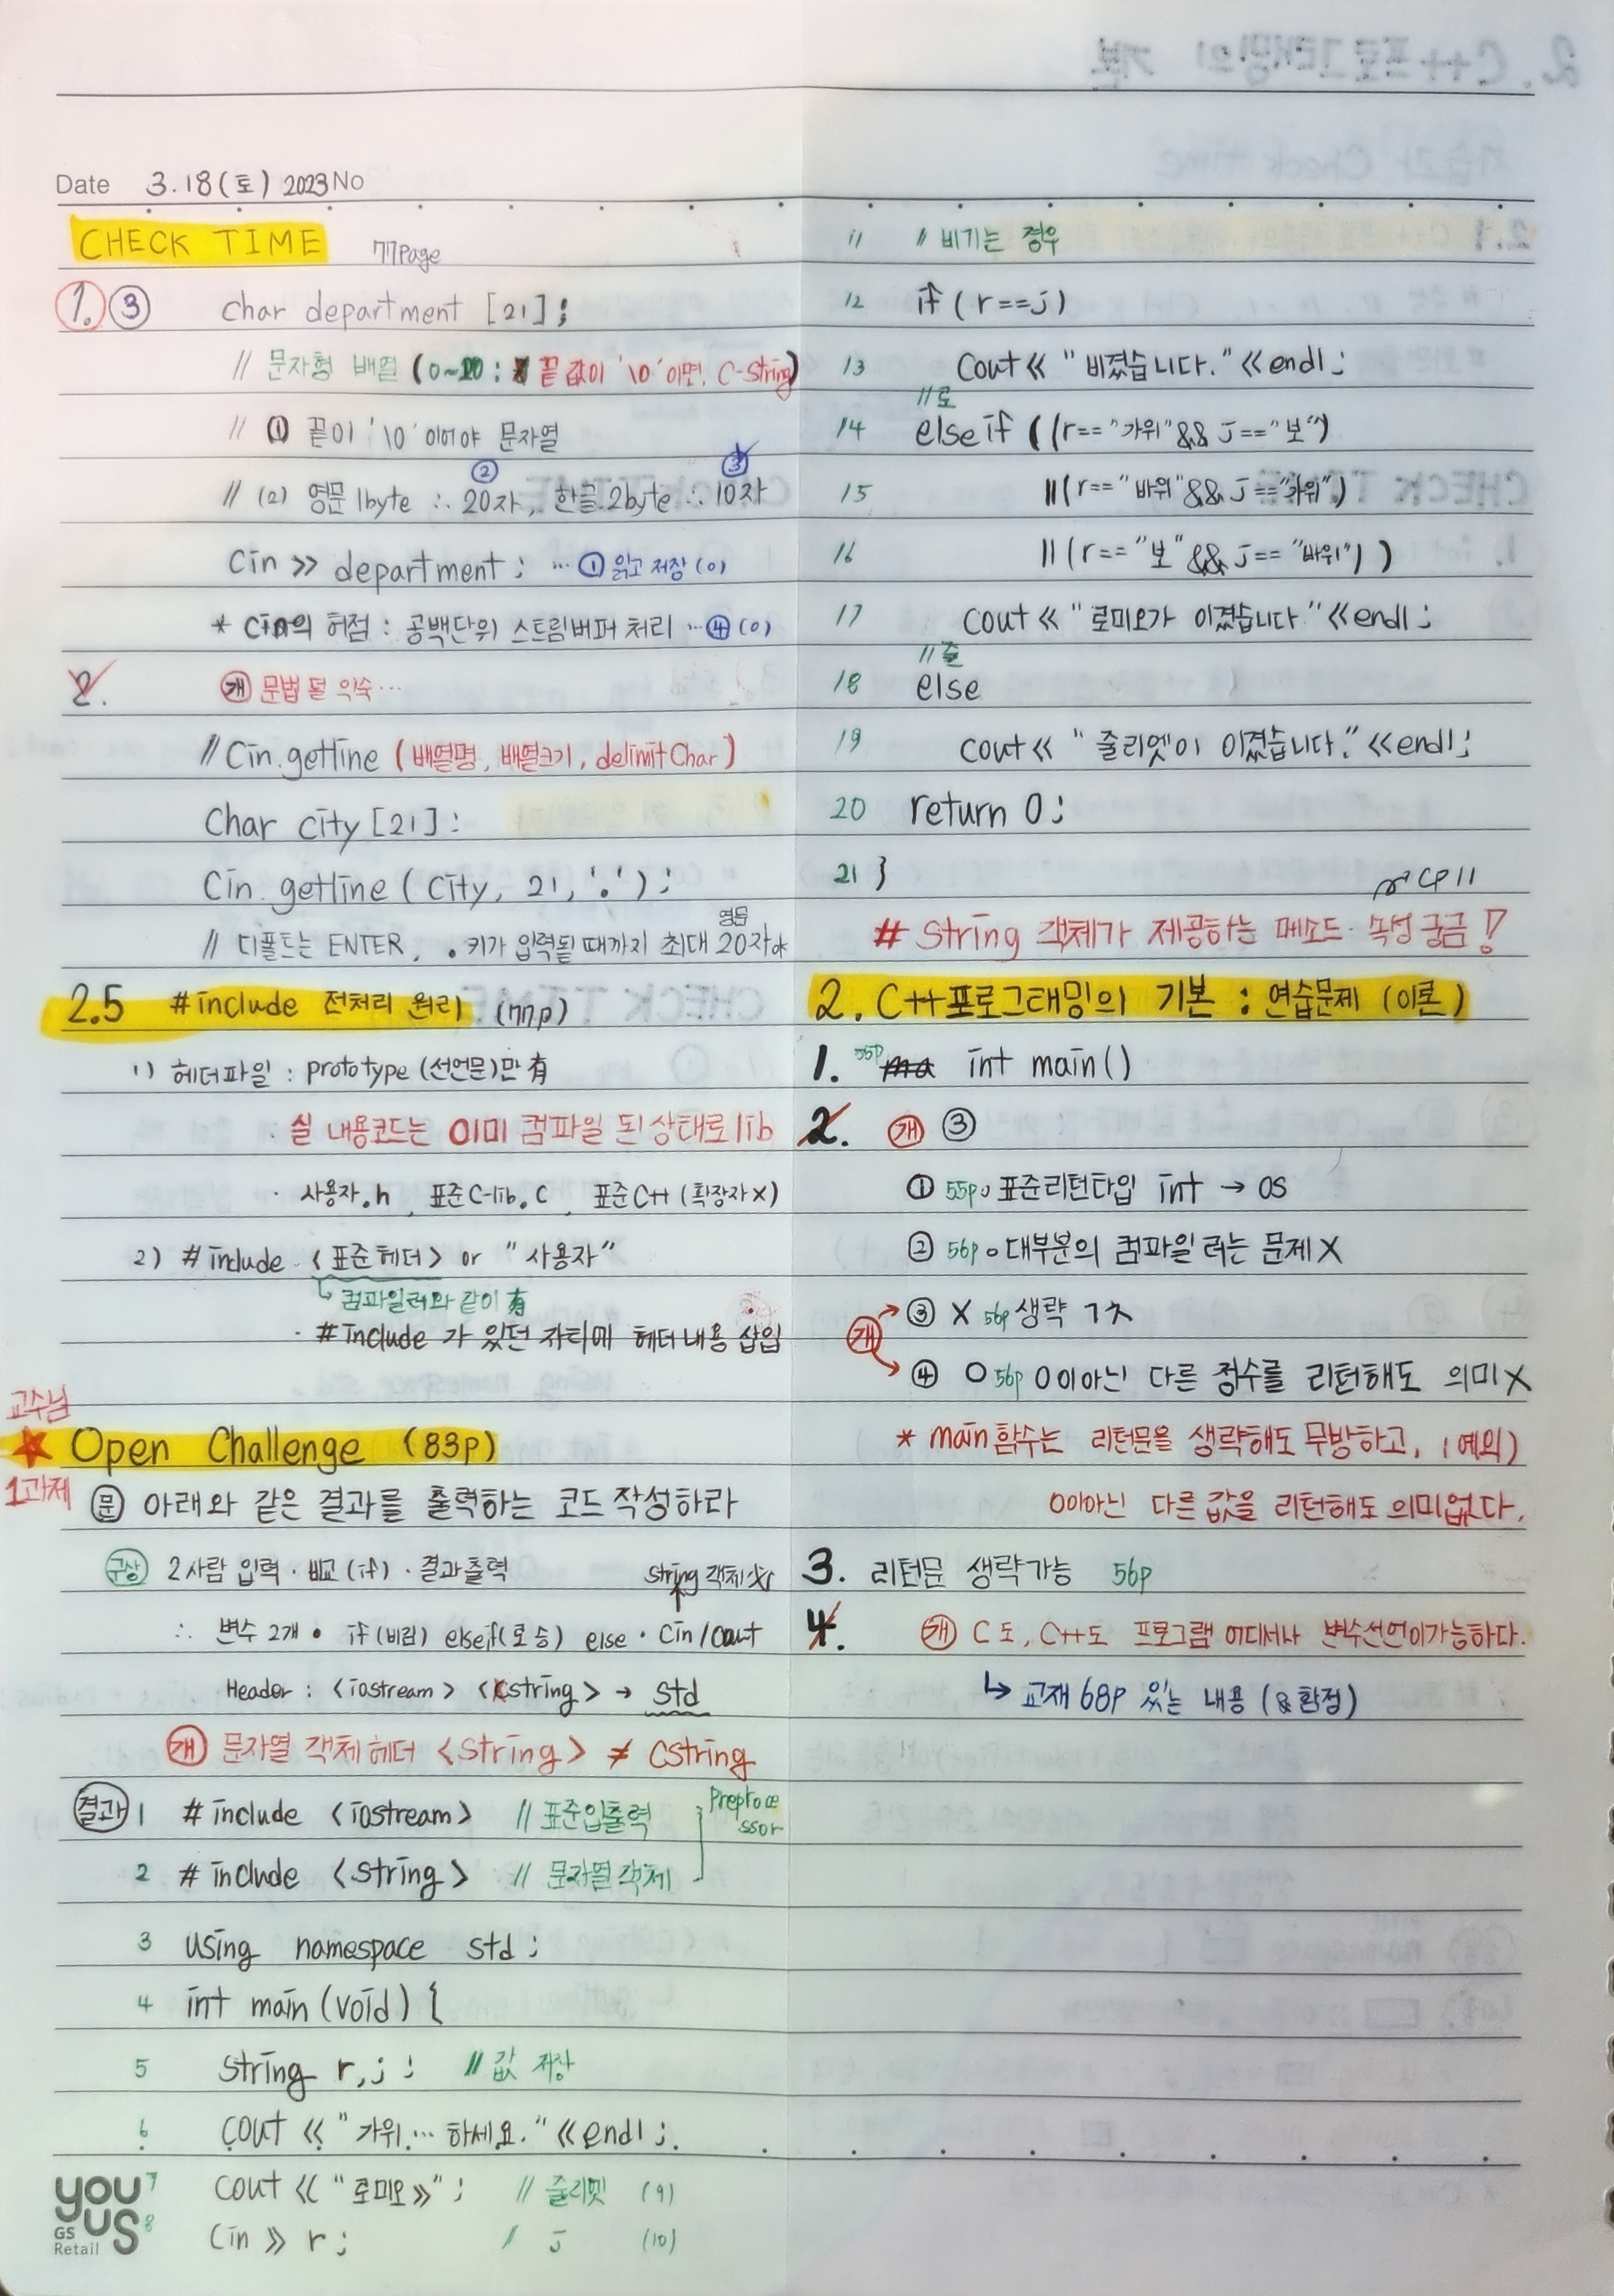 Date 3.18(토) 2023 No
CHECK TIME 77page
1. ③ char department [21];
// 문자형 배열 (0~20 : 끝 값이 '\0' 이면, C-String)
// ① 끝이 '\0' 이어야 문자열
② ③
// (2) 영문 1byte ∴ 20자, 한글 2byte ∴ 10자
Cin >> department; … ① 읽고 저장 (o)
* cin의 허점 : 공백단위 스트림버퍼 처리 … ④ (o)
2. 개 문법 덜 익숙…
// Cin.getline (배열명, 배열크기, delimitChar)
Char city [21];
Cin.getline (City, 21, '.');
영문
// 디폴트는 ENTER, . 키가 입력될 때까지 최대 20자
2.5 #include 전처리 원리 (77p)
1) 헤더파일 : prototype (선언문)만 有
· 실 내용코드는 이미 컴파일 된 상태로 lib
· 사용자.h, 표준C-lib.C, 표준C++ (확장자X)
2) #include <표준헤더> or "사용자"
↳ 컴파일러와 같이 有
· #include 가 있던 자리에 헤더 내용 삽입
교수님
★ Open Challenge (83p)
1과제 문 아래와 같은 결과를 출력하는 코드 작성하라
구상 2사람 입력 · 비교 (if) · 결과출력 string 객체
∴ 변수 2개 · if (비김) else if(로 승) else · Cin/Cout
Header : <iostream> <cstring> → std
개 문자열 객체 헤더 <String> ≠ CString
결과 1 #include <iostream> // 표준입출력 Preproce
ssor
2 #include <String> // 문자열 객체
3 using namespace std;
4 int main (void) {
5 String r, j; // 값 저장
6 cout << "가위… 하세요." << endl;
7 cout << "로미오>>"; // 줄리엣 (9)
8 Cin >> r; // j (10)
you us
GS
Retail
11 // 비기는 경우
12 if (r==j)
13 Cout << "비겼습니다." << endl;
// 로
14 else if ((r=="가위" && j=="보")
15 || (r=="바위" && j=="가위")
16 || (r=="보" && j=="바위"))
17 cout << "로미오가 이겼습니다." << endl;
// 줄
18 else
19 cout << "줄리엣이 이겼습니다." << endl;
20 return 0;
21 }
# String 객체가 제공하는 메소드 · 속성 궁금!
2. C++프로그래밍의 기본 : 연습문제 (이론)
1. 56p int main()
2. 개 ③
① 55p. 표준리턴타입 int → OS
② 56p. 대부분의 컴파일러는 문제X
개 → ③ X 56p 생략 가능
→ ④ O 56p 0이아닌 다른 정수를 리턴해도 의미X
* main 함수는 리턴문을 생략해도 무방하고, (예외)
0이아닌 다른 값을 리턴해도 의미없다.
3. 리턴문 생략가능 56p
4. 개 C도, C++도 프로그램 어디서나 변수선언이가능하다.
↳ 교재 68p 있는 내용 (& 환정)